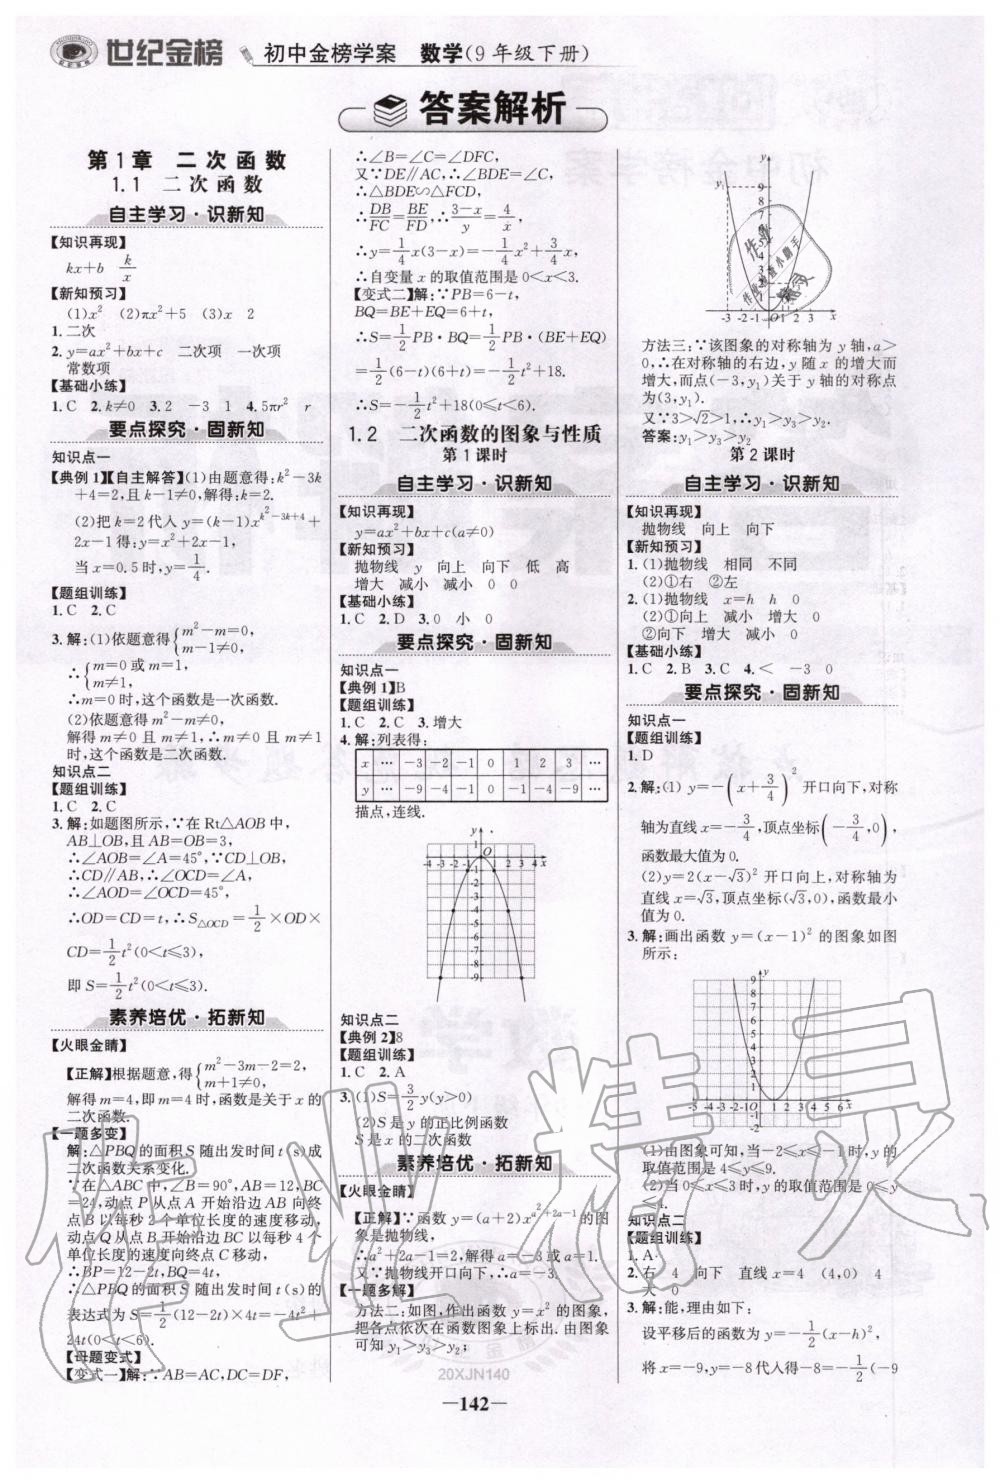 世纪金榜 初中金榜学案 数学(9年级下册)
答案解析
第1章 二次函数
1.1 二次函数
自主学习·识新知
【知识再现】
kx+b k/x
【新知预习】
(1)x² (2)πx²+5 (3)x 2
1.二次
2.y=ax²+bx+c 二次项 一次项
常数项
【基础小练】
1.C 2.k≠0 3.2 -3 1 4.5πr² r
要点探究·固新知
知识点一
【典例1】【自主解答】(1)由题意得:k²-3k
+4=2,且k-1≠0,解得:k=2.
(2)把k=2代入y=(k-1)x^(k²-3k+4)+
2x-1得:y=x²+2x-1,
当x=0.5时,y=1/4.
【题组训练】
1.C 2.C
3.解:(1)依题意得{m²-m=0,
m-1≠0,
∴{m=0或m=1,
m≠1,
∴m=0时,这个函数是一次函数.
(2)依题意得m²-m≠0,
解得m≠0且m≠1,∴m≠0且m≠1
时,这个函数是二次函数.
知识点二
【题组训练】
1.C 2.C
3.解:如题图所示,∵在Rt△AOB中,
AB⊥OB,且AB=OB=3,
∴∠AOB=∠A=45°,∵CD⊥OB,
∴CD∥AB,∴∠OCD=∠A,
∴∠AOD=∠OCD=45°,
∴OD=CD=t,∴S△OCD=1/2×OD×
CD=1/2t²(0<t≤3),
即S=1/2t²(0<t≤3).
素养培优·拓新知
【火眼金睛】
【正解】根据题意,得{m²-3m-2=2,
m+1≠0,
解得m=4,即m=4时,函数是关于x的
二次函数.
【一题多变】
解:△PBQ的面积S随出发时间t(s)成
二次函数关系变化.
∵在△ABC中,∠B=90°,AB=12,BC
=24,动点P从点A开始沿边AB向终
点B以每秒2个单位长度的速度移动,
动点Q从点B开始沿边BC以每秒4个
单位长度的速度向终点C移动,
∴BP=12-2t,BQ=4t,
∴△PBQ的面积S随出发时间t(s)的
表达式为S=1/2(12-2t)×4t=-4t²+
24t(0<t<6).
【母题变式】
【变式一】解:∵AB=AC,DC=DF,
∴∠B=∠C=∠DFC,
又∵DE∥AC,∴∠BDE=∠C,
∴△BDE∽△FCD,
∴DB/FC=BE/FD,∴(3-x)/y=x/4,
∴y=1/4x(3-x)=-1/4x²+3/4x,
∴自变量x的取值范围是0<x<3.
【变式二】解:∵PB=6-t,
BQ=BE+EQ=6+t,
∴S=1/2PB·BQ=1/2PB·(BE+EQ)
=1/2(6-t)(6+t)=-1/2t²+18.
∴S=-1/2t²+18(0≤t<6).
1.2 二次函数的图象与性质
第1课时
自主学习·识新知
【知识再现】
y=ax²+bx+c(a≠0)
【新知预习】
抛物线 y 向上 向下 低 高
增大 减小 减小 0 0
【基础小练】
1.C 2.D 3.0 小 0
要点探究·固新知
知识点一
【典例1】B
【题组训练】
1.C 2.C 3.增大
4.解:列表得:
x … -3 -2 -1 0 1 2 3 …
y … -9 -4 -1 0 -1 -4 -9 …
描点,连线.
知识点二
【典例2】8
【题组训练】
1.C 2.A
3.(1)S=3/2y(y>0)
(2)S是y的正比例函数
S是x的二次函数
素养培优·拓新知
【火眼金睛】
【正解】∵函数y=(a+2)x^(a²+2a-1)的图
象是抛物线,
∴a²+2a-1=2,解得a=-3或a=1.
又∵抛物线开口向下,∴a=-3.
【一题多解】
方法二:如图,作出函数y=x²的图象,
把各点依次在函数图象上标出.由图象
可知y₁>y₃>y₂;
方法三:∵该图象的对称轴为y轴,a>
0,∴在对称轴的右边,y随x的增大而
增大,而点(-3,y₁)关于y轴的对称点
为(3,y₁).
又∵3>√2>1,∴y₁>y₃>y₂.
答案:y₁>y₃>y₂
第2课时
自主学习·识新知
【知识再现】
抛物线 向上 向下
【新知预习】
1.(1)抛物线 相同 不同
(2)①右 ②左
2.(1)抛物线 x=h h 0
(2)①向上 减小 增大
②向下 增大 减小
【基础小练】
1.C 2.B 3.C 4.< -3 0
要点探究·固新知
知识点一
【题组训练】
1.D
2.解:(1)y=-(x+3/4)²开口向下,对称
轴为直线x=-3/4,顶点坐标(-3/4,0),
函数最大值为0.
(2)y=2(x-√3)²开口向上,对称轴为
直线x=√3,顶点坐标(√3,0),函数最小
值为0.
3.解:画出函数y=(x-1)²的图象如图
所示:
(1)由图象可知,当-2≤x≤-1时,y的
取值范围是4≤y≤9.
(2)当0≤x≤3时,y的取值范围是0≤y
≤4.
知识点二
【题组训练】
1.A
2.右 4 向下 直线x=4 (4,0) 4
大 0
3.解:能,理由如下:
设平移后的函数为y=-1/2(x-h)²,
将x=-9,y=-8代入得-8=-1/2(-9
20XJN140
—142—